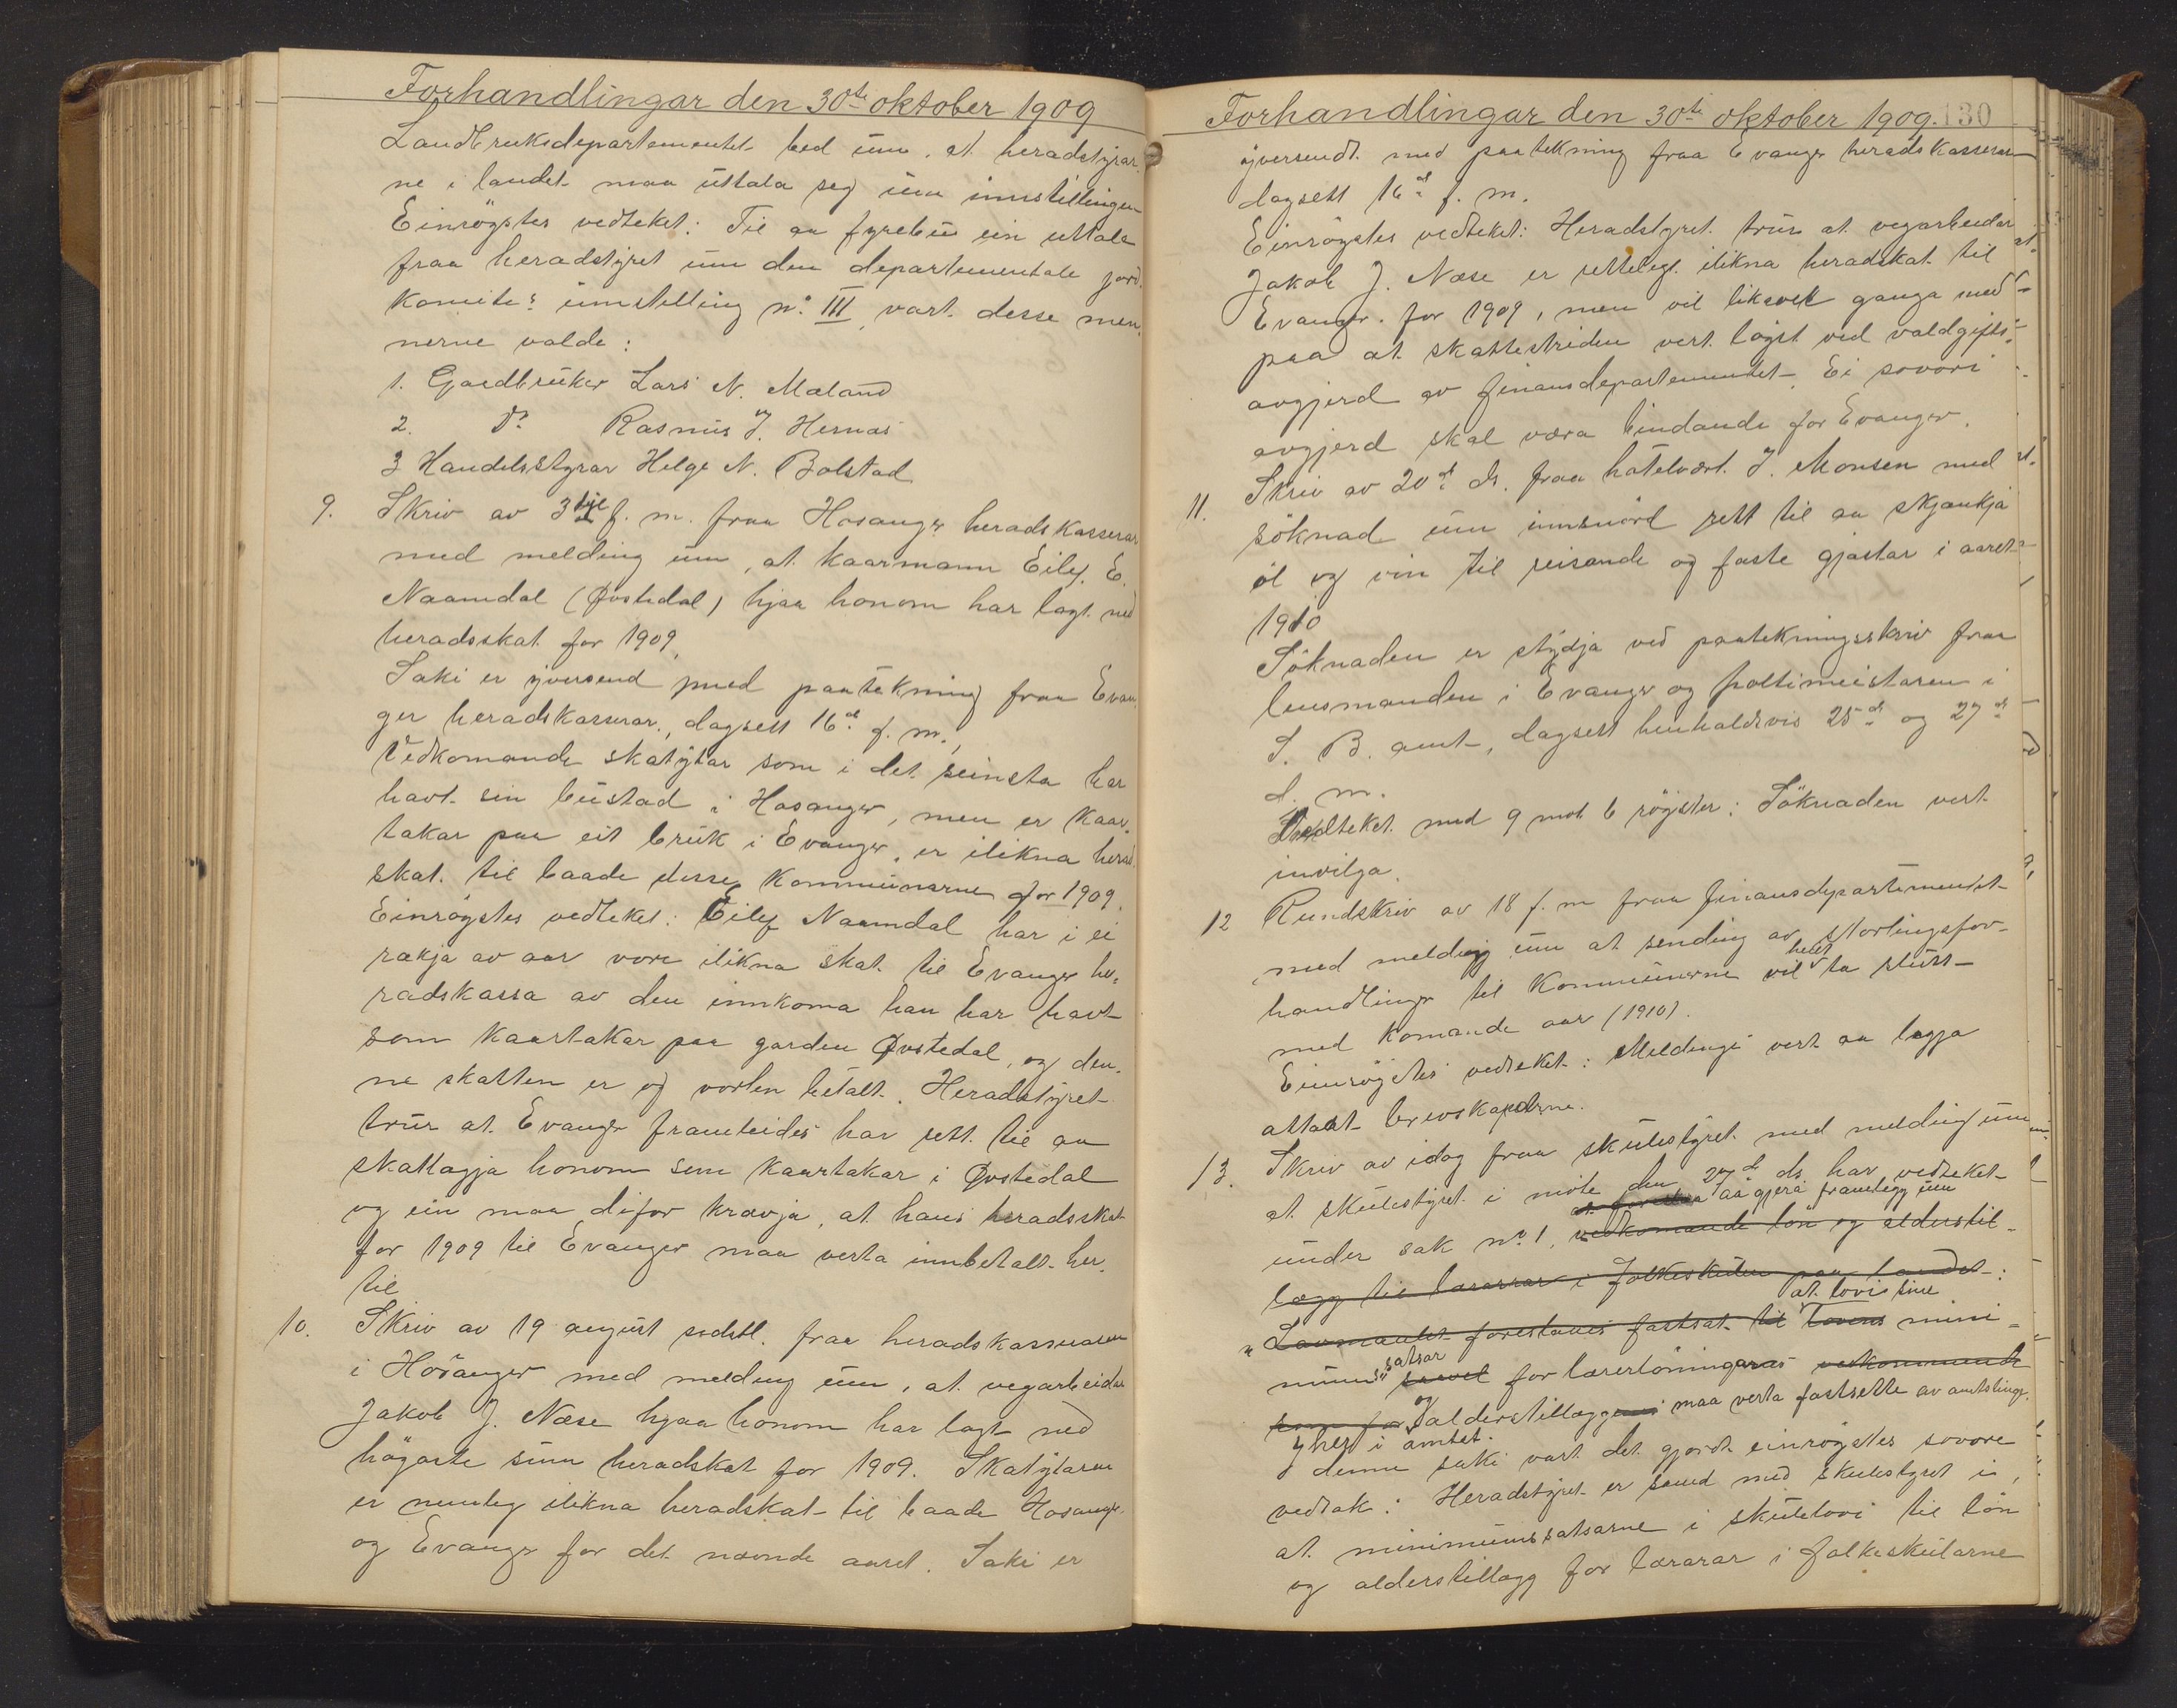 Forhandlingar den 30te oktober 1909
Landbruksdepartementet bed um, at heradstyrar-
ne i landet maa uttala seg um innstillingen
Einrøystes vedteket: Til aa fyrebu ein uttale
fraa heradstyret um den departementale jord-
komite's innstilling no. III, vart desse men-
nerne valde:
1. Gardbruker Lars N. Maland
2. Do Rasmus J. Hernæs
3 Handelsstyrar Helge N. Bolstad
9. Skriv av 3dje f. m. fraa Hosanger heradskasserar
med melding um, at kaarmann Eilef E.
Naamdal (Øvstedal) hjaa honom har lagt ned
heradsskat for 1909.
Saki er yversend med paatekning fraa Evan-
ger heradskasserar, dagsett 16de f. m.,
Vedkomande skatytar som i det seinsta har
havt sin bustad i Hosanger, men er kaar-
takar paa eit bruk i Evanger, er ilikna herad-
skat til baade desse kommunarne for 1909.
Einrøystes vedteket: Eilef Naamdal har i ei
rækja av aar vore ilikna skat til Evanger he-
radskassa av den innkoma han har havt
som kaartakar paa garden Øvstedal, og den-
ne skatten er og vorten betalt. Heradstyret
trur at Evanger framleides har rett til aa
skattlægja honom som kaartakar i Øvstedal
og ein maa difor krævja, at hans heradsskat
for 1909 til Evanger maa verta innbetalt her-
til
10. Skriv av 19 august sidstl. fraa heradskasseraren
i Hosanger med melding um, at vegarbeidar
Jakob J. Næse hjaa honom har lagt ned
høgaste sum heradskat for 1909. Skatytaren
er nemleg ilikna heradskat til baade Hosanger
og Evanger for det nævnde aaret. Saki er
Forhandlingar den 30te oktober 1909. 130
yversendt med paatekning fraa Evanger heradskasserar
dagsett 16de f. m.
Einrøystes vedteket: Heradstyret trur at vegarbeidar
Jakob J. Næse er rettelegt ilikna heradskat til
Evanger for 1909, men vil likevel ganga med
paa at skattestriden vert løyst ved valdgifts-
avgjerd av finansdepartementet. Ei sovori
avgjerd skal væra bindande for Evanger.
11. Skriv av 20de ds. fraa hotelvært J. Monsen med
søknad um innsnørd rett til aa skjænkja
øl og vin til reisande og faste gjæstar i aaret
1910
Søknaden er stydja ved paatekningsskriv fraa
lensmanden i Evanger og politimeistaren i
S. B. amt, dagsett henholdsvis 25de og 27de
d. m.
Vedteket med 9 mot 6 røyster: Søknaden vert
innvilga.
12 Rundskriv av 18 f. m fraa finansdepartementet
med melding um at sending av stortingsfor-
handlinger til kommunerne vil helst ta slutt
med komande aar (1910).
Einrøystes vedteket: Meldingi vert aa leggja
attaat brevskaperne.
13. Skriv av idag fraa skulestyret med melding um
at skulestyret i møte den 27de ds. har vedteket
at foreslaa aa gjera framlegg um
under sak no. 1, vedkomande løn og alderstil-
lægg til lærarar i folkeskulen paa landet:
at lovi sine
"Lovmaalet foreslaaes fastsat til lovens mini-
mums" satsar saavel for lærerlønningarne vedkommende
som for og alderstillæggene maa verta fastsette av amtstinge
her i amtet.
I denne saki vart det gjordt einrøystes sovore
vedtak: Heradstyret er samd med skulestyret i,
at minimumssatsarne i skulelovi til løn
og alderstillægg for lærarar i folkeskularne